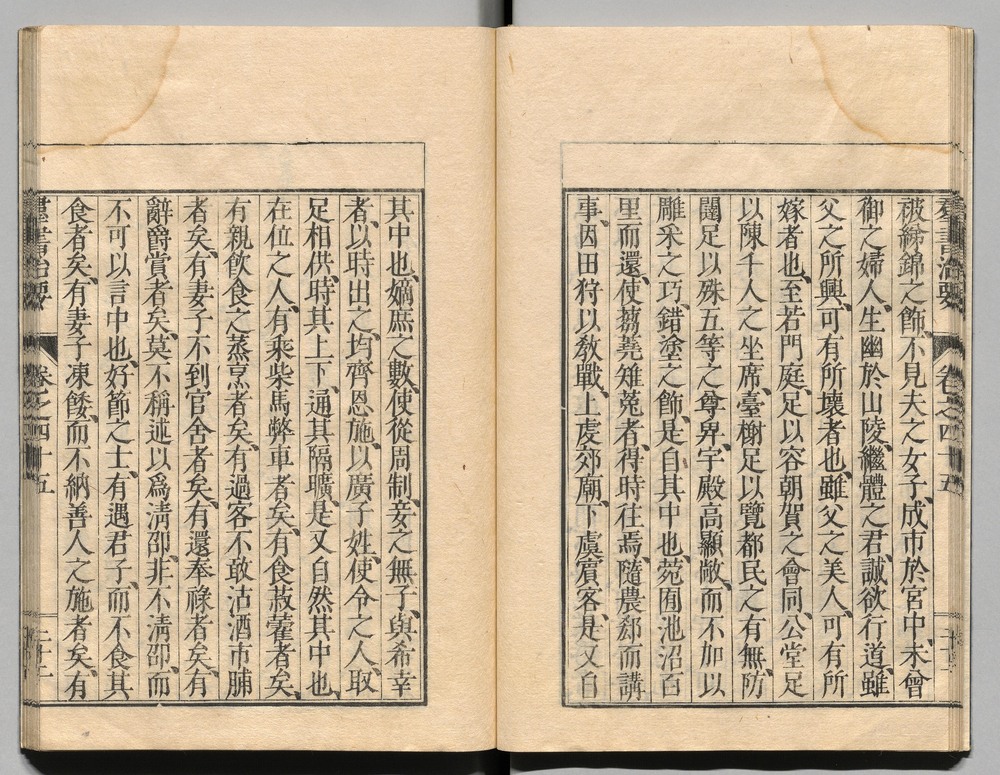 羣書治要 卷之四十五
被綈錦之飾、不見夫之女子、成市於宮中、未曾
御之婦人、生幽於山陵、繼體之君、誠欲行道、雖
父之所興、可有所壞者也、雖父之美人、可有所
嫁者也、至若門庭、足以容朝賀之會同、公堂足
以陳千人之坐席、臺榭足以覽都民之有無、防
闥足以殊五等之尊卑、宇殿高顯敞、而不加以
雕采之巧、錯塗之飾、是自其中也、苑囿池沼百
里而還、使芻蕘雉菟者、得時往焉、隨農郄而講
事、因田狩以敎戰、上虔郊廟、下虞賓客、是又自
其中也、嫡庶之數、使從周制、妾之無子、與希幸
者、以時出之、均齊恩施、以廣子姓、使令之人、取
足相供、時其上下、通其隔曠、是又自然其中也、
在位之人、有乘柴馬弊車者矣、有食菽藿者矣、
有親飲食之蒸烹者矣、有過客不敢沽酒市脯
者矣、有妻子不到官舍者矣、有還奉祿者矣、有
辭爵賞者矣、莫不稱述以爲淸卲、非不淸卲、而
不可以言中也、好節之士、有遇君子、而不食其
食者矣、有妻子凍餧、而不納善人之施者矣、有
羣書治要 卷之四十五 二十二